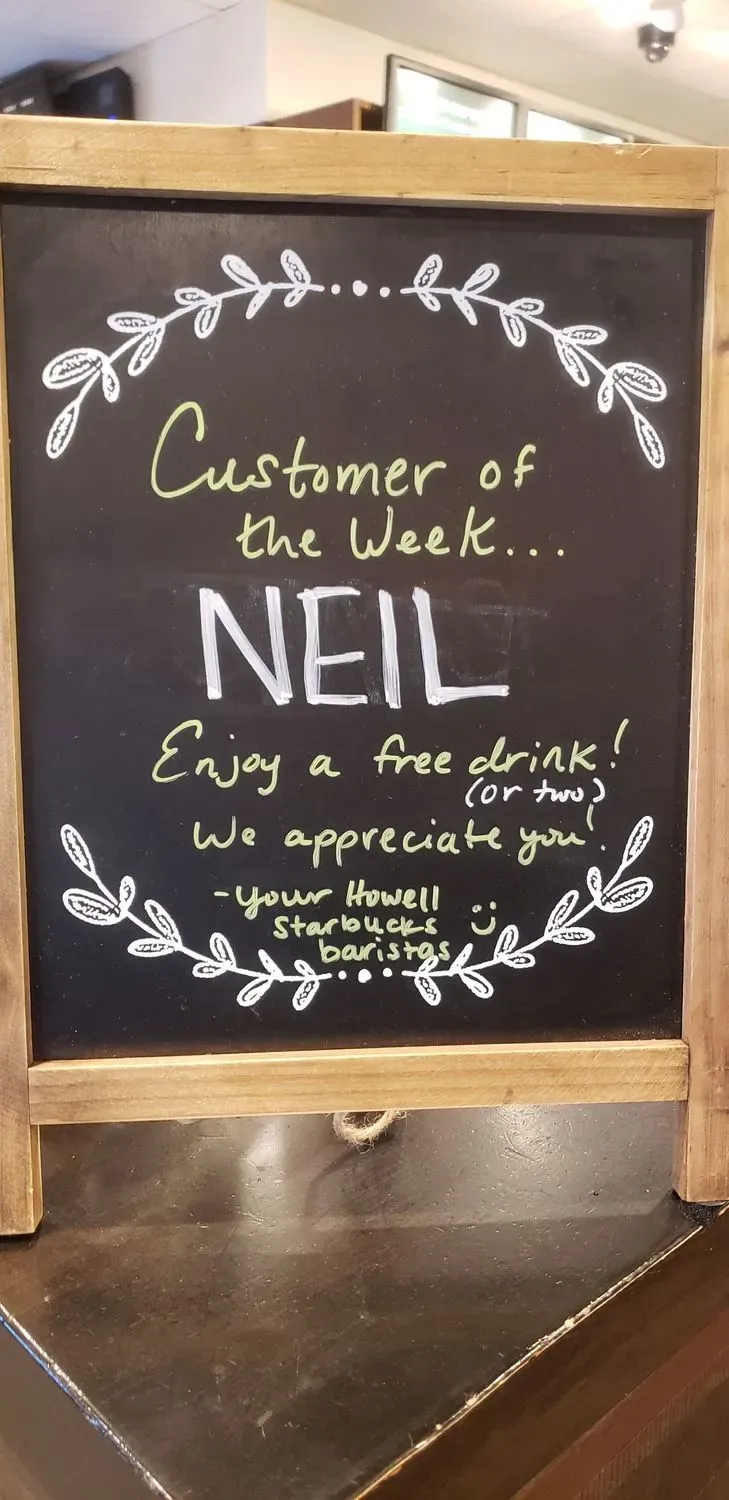 Customer of
the Week...
NEIL
Enjoy a free drink!
(or two)
We appreciate you!
-your Howell
Starbucks
baristas